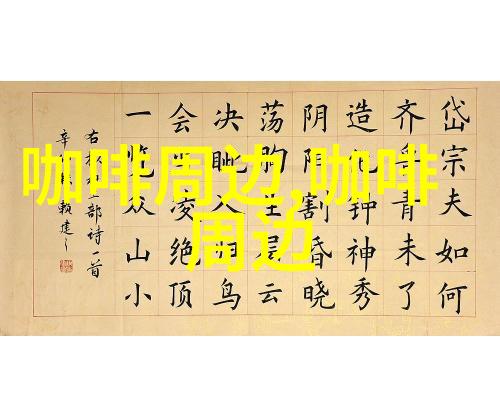 咖啡周边,咖啡
周边
岱宗夫如何
齐鲁青未了
造化钟神秀
阴阳割昏晓
荡胸生云
决眦入归鸟
会当凌绝顶
一览众山小
右部诗一首
辛赖建